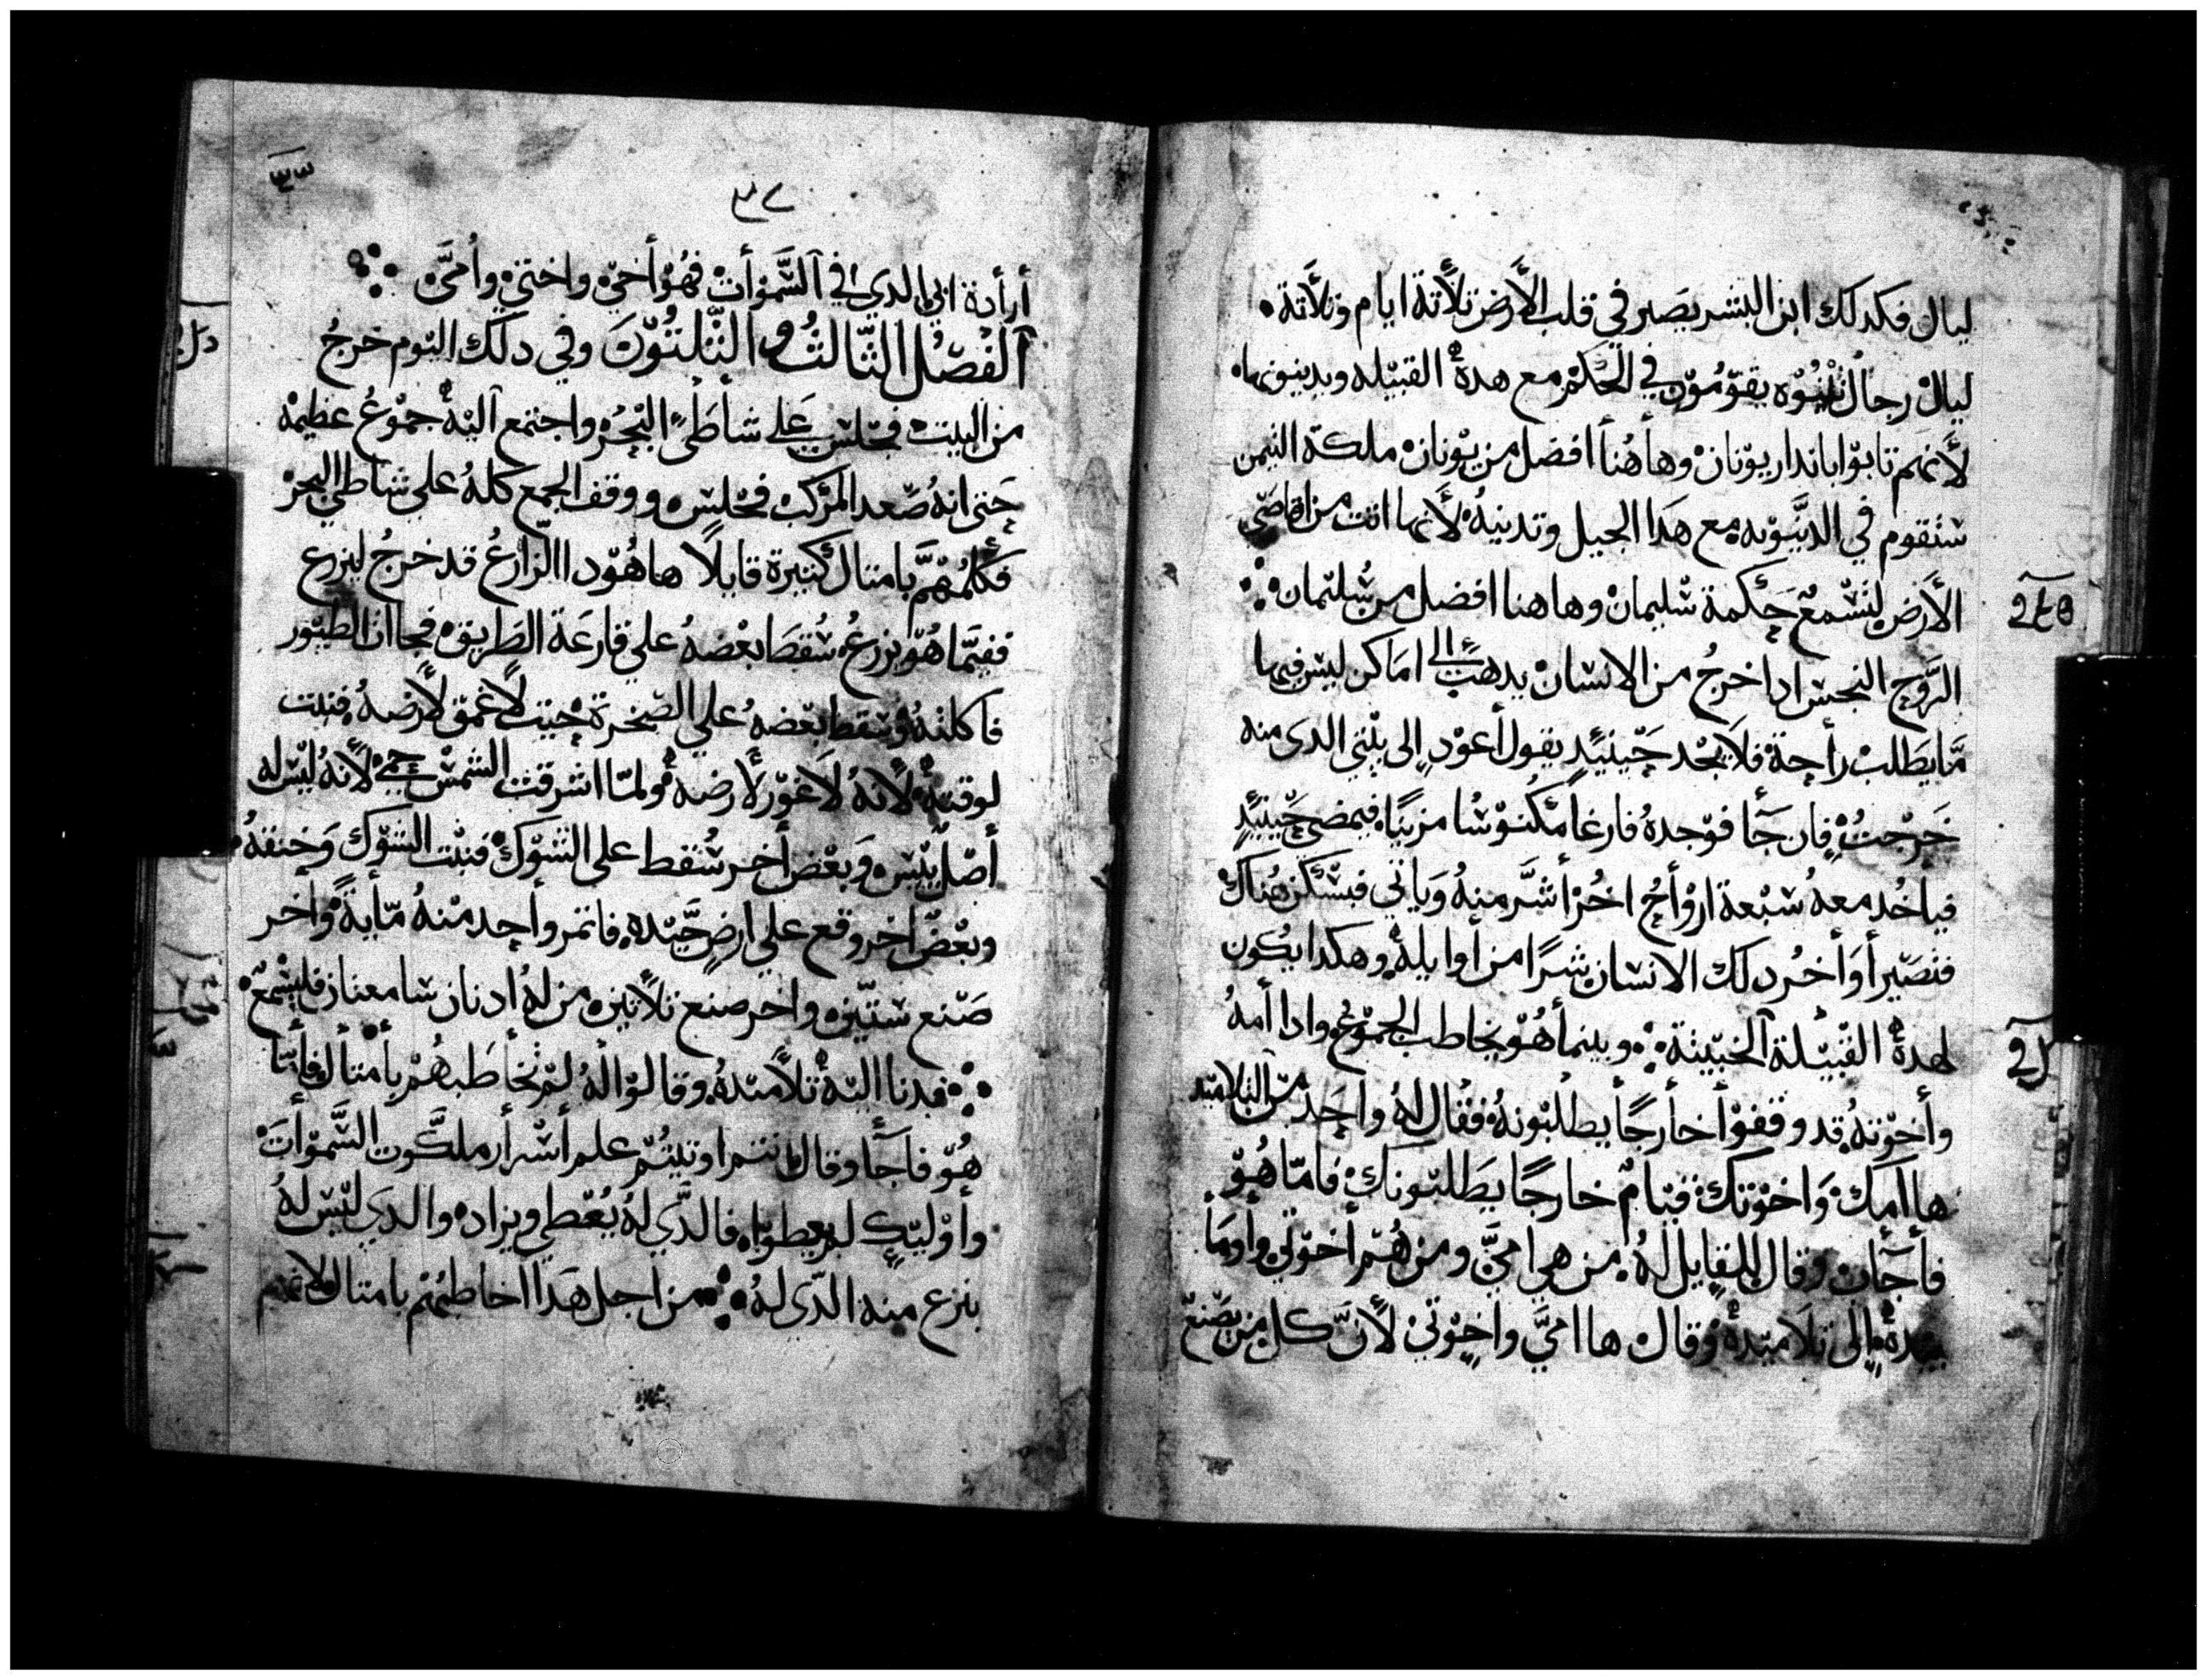 ليال فكدلك ابن البشر يصير في قلب الأرض تلاتة ايام وتلاتة
ليال رجال نينوه يقومون في الحكم مع هده القبيله ويدينونها
لأنهم تابوا باندار يونان وهاهنا افضل من يونان ملكة التيمن
ستقوم في الدينونه مع هدا الجيل وتدينه لأنها اتت من اقاصي
الأرض لتسمع حكمة سليمان وهاهنا افضل من سليمان
الروح النجس ادا خرج من الانسان يدهب الى اماكن ليس فيها
ما يطلب راحة فلا يجد حينيد يقول أعود إلى بيتي الدى منه
خرجت فان جا فوجده فارغا مكنوسا مزينا فيمضي حينيد
فيأخد معه سبعة ارواح اخر أشر منه وياتي فيسكن هناك
فتصير أواخر دلك الانسان شرا من أوايله وهكدا يكون
لهده القبيلة الخبيتة وبينما هو يخاطب الجموع وادا أمه
وأخوته قد وقفوا خارجا يطلبونه فقال له واحد من التلاميد
ها امك واخوتك قيام خارجا يطلبونك فاما هو
فأجاب وقال للقايل له من هي امي ومن هم أخوتي وأوما
بيده إلى تلاميده وقال ها امي واخوتي لأن كل من يصنع
٢٤٥
ارأدة ابي الدي في السموات فهو أخي واختي وأمي
الفصل التالت والتلتون وفي دلك اليوم خرج
من البيت فجلس على شاطئ البحر واجتمع اليه جموع عظيمه
حتى انه صعد المركب فجلس ووقف الجمع كله علي شاطي البحر
فكلمهم بامتال كتيرة قايلا ها هودا الزارع قد خرج ليزرع
ففيما هو يزرع سقط بعضه علي قارعة الطريق فجا الطيور
فاكلته وسقط بعضه علي الصخرة حيت لاعمق لأرضه فنبت
لوقته لأنه لاغور لأرضه ولما اشرقت الشمس حمي لأنه ليس له
أصل يبس وبعض أخر سقط على الشوك فنبت الشوك وخنقه
وبعض اخر وقع علي ارض جيده فاتمر واحد منه مأية واخر
صنع ستين واخر صنع تلاتين من له ادنان سامعتان فليسمع
فدنا اليه تلاميده وقالوا له لم تخاطبهم بأمتال فأما
هو فاجا وقال انتم اوتيتم علم أسرار ملكوت السموات
وأوليك لم يعطوا فالدي له يعطي ويزاد والدي ليس له
ينزع منه الدي له من اجل هدا اخاطبهم بامتال لانهم